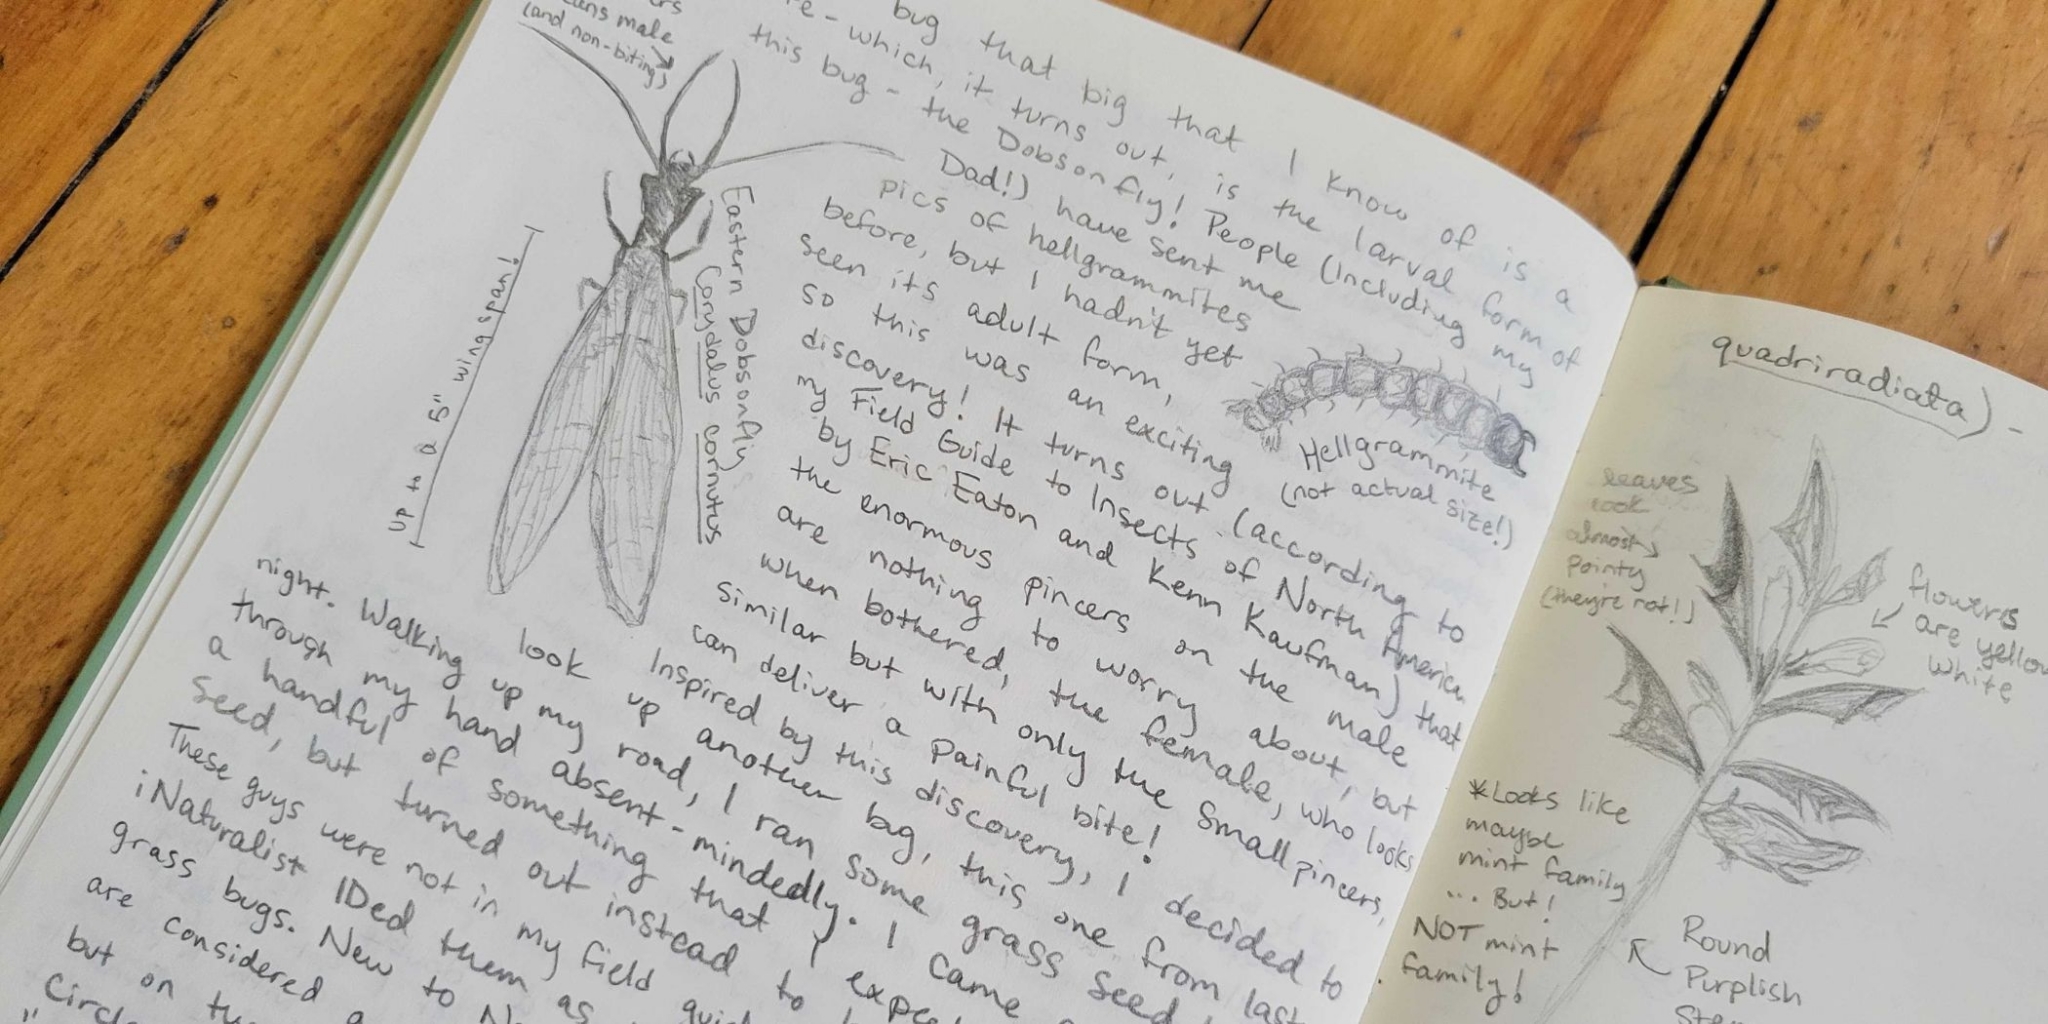 means male
(and non-biting)
bug that big that I know of is a
re - which, it turns out, is the larval form of
this bug - the Dobsonfly! People (including my
Dad!) have sent me
pics of hellgrammites
before, but I hadn't yet
seen its adult form,
so this was an exciting
discovery! It turns out (according to
my Field Guide to Insects of North America
by Eric Eaton and Kenn Kaufman) that
the enormous pincers on the male
are nothing to worry about, but
when bothered, the female, who looks
similar but with only the small pincers,
can deliver a painful bite!
Inspired by this discovery, I decided to
look up another bug, this one from last
night. Walking up my road, I ran some grass seed
through my hand absent-mindedly. I came
a handful of something that I
seed, but turned out instead to
These guys were not in my field
iNaturalist IDed them as
grass bugs. New to
are considered
but on
Eastern Dobsonfly
Corydalus cornutus
up to a 5" wingspan!
Hellgrammite
(not actual size!)
quadriradiata) -
leaves
look
almost
pointy
(they're not!)
flowers
are yellow
white
*Looks like
maybe
mint family
... But!
NOT mint
family!
Round
Purplish